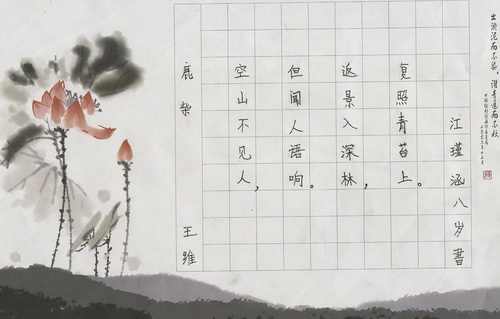 鹿柴 王维
空山不见人,
但闻人语响。
返景入深林,
复照青苔上。
江瑾涵八岁书
出淤泥而不染,